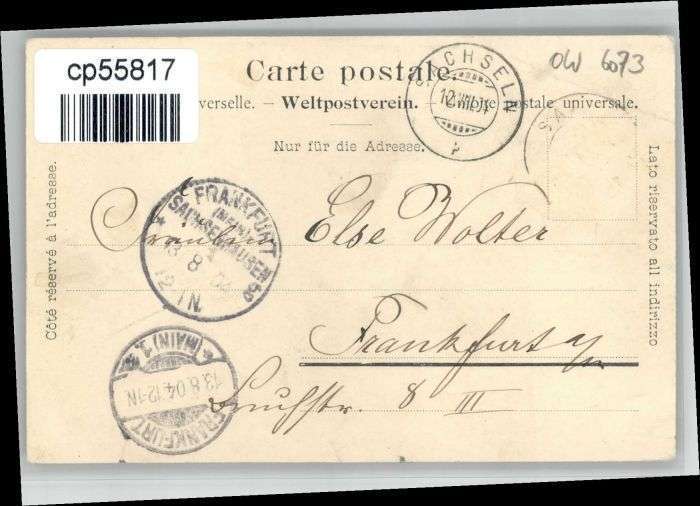 cp55817
OW 6073
Carte postale.
verselle. — Weltpostverein. — postale universale.
Nur für die Adresse.
Côté réservé à l'adresse.
Lato riservato all indirizzo
SACHSELN
12.VIII.04
FRANKFURT
(MAIN)
SACHSENHAUSEN
13 8 04
12-1N.
Fräulein Else Wolter
Frankfurt a/m
Bruchstr. 8 III
(MAIN) 1.
13.8.04.12-1N
FRANKFURT